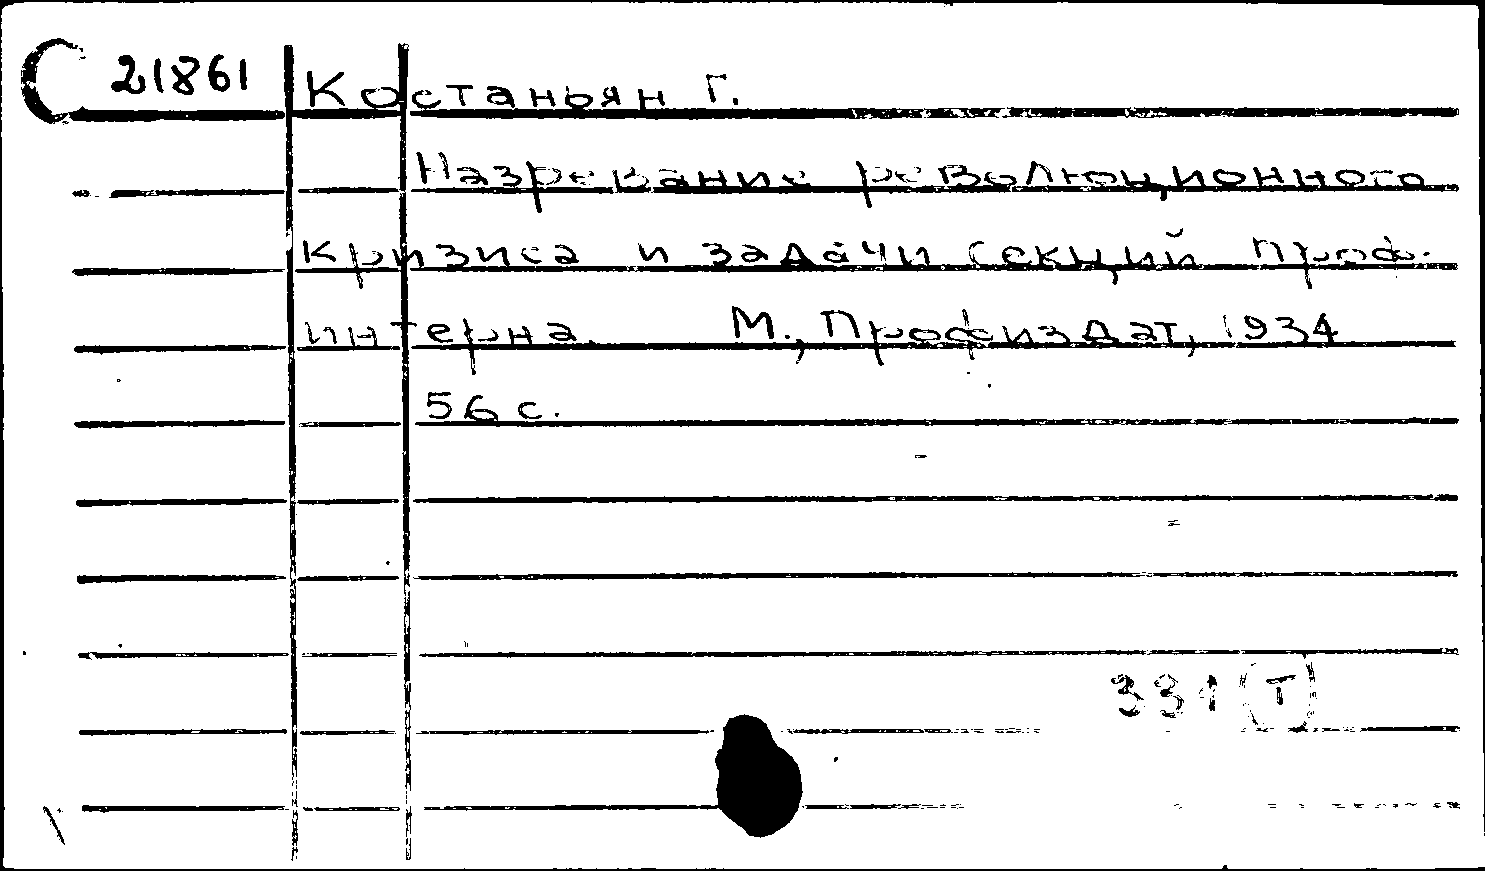 21861 Костаньян Г.
Назревание революционного
кризиса и задачи секций Проф-
интерна. М., Профиздат, 1934
56 с.
331(Т)